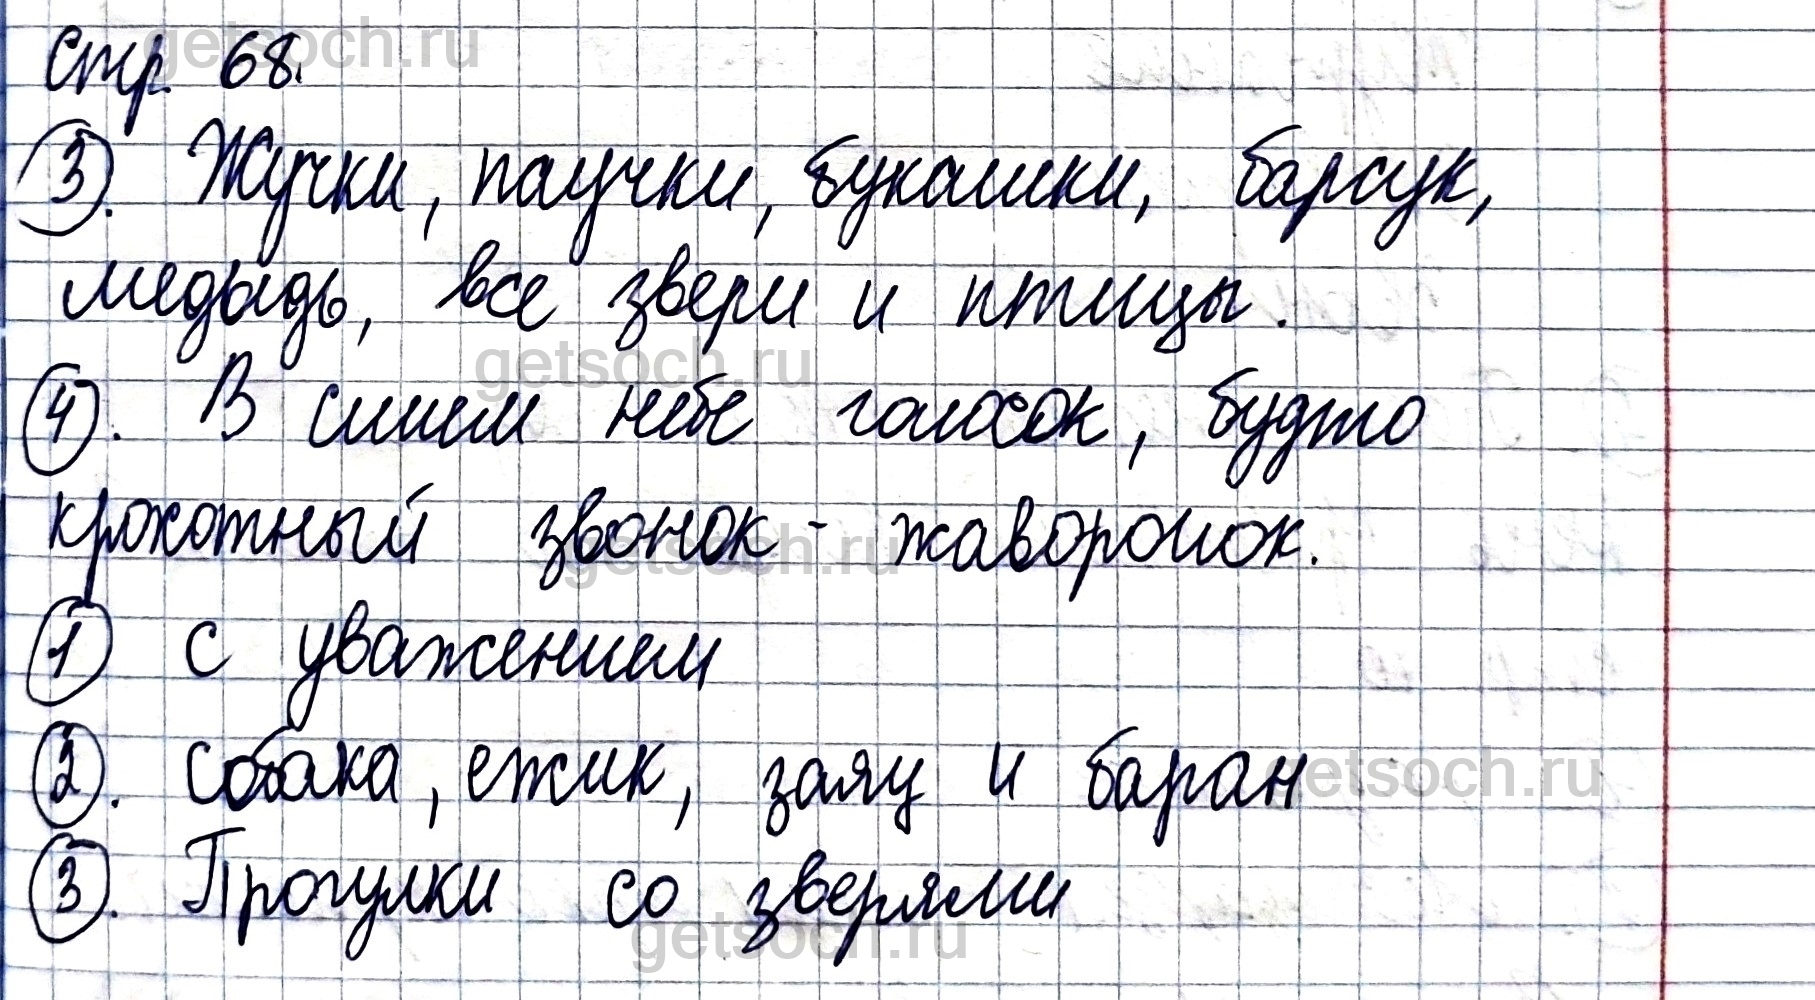 стр. 68.
3. Жучки, паучки, букашки, барсук,
медыдь, все звери и птицы.
4. В синем небе голосок, будто
крохотный звонок - жаворонок.
1 с уважением
2. собака, ежик, заяц и баран
3. Прогулки со зверями
getsoch.ru
getsoch.ru
getsoch.ru
getsoch.ru
getsoch.ru